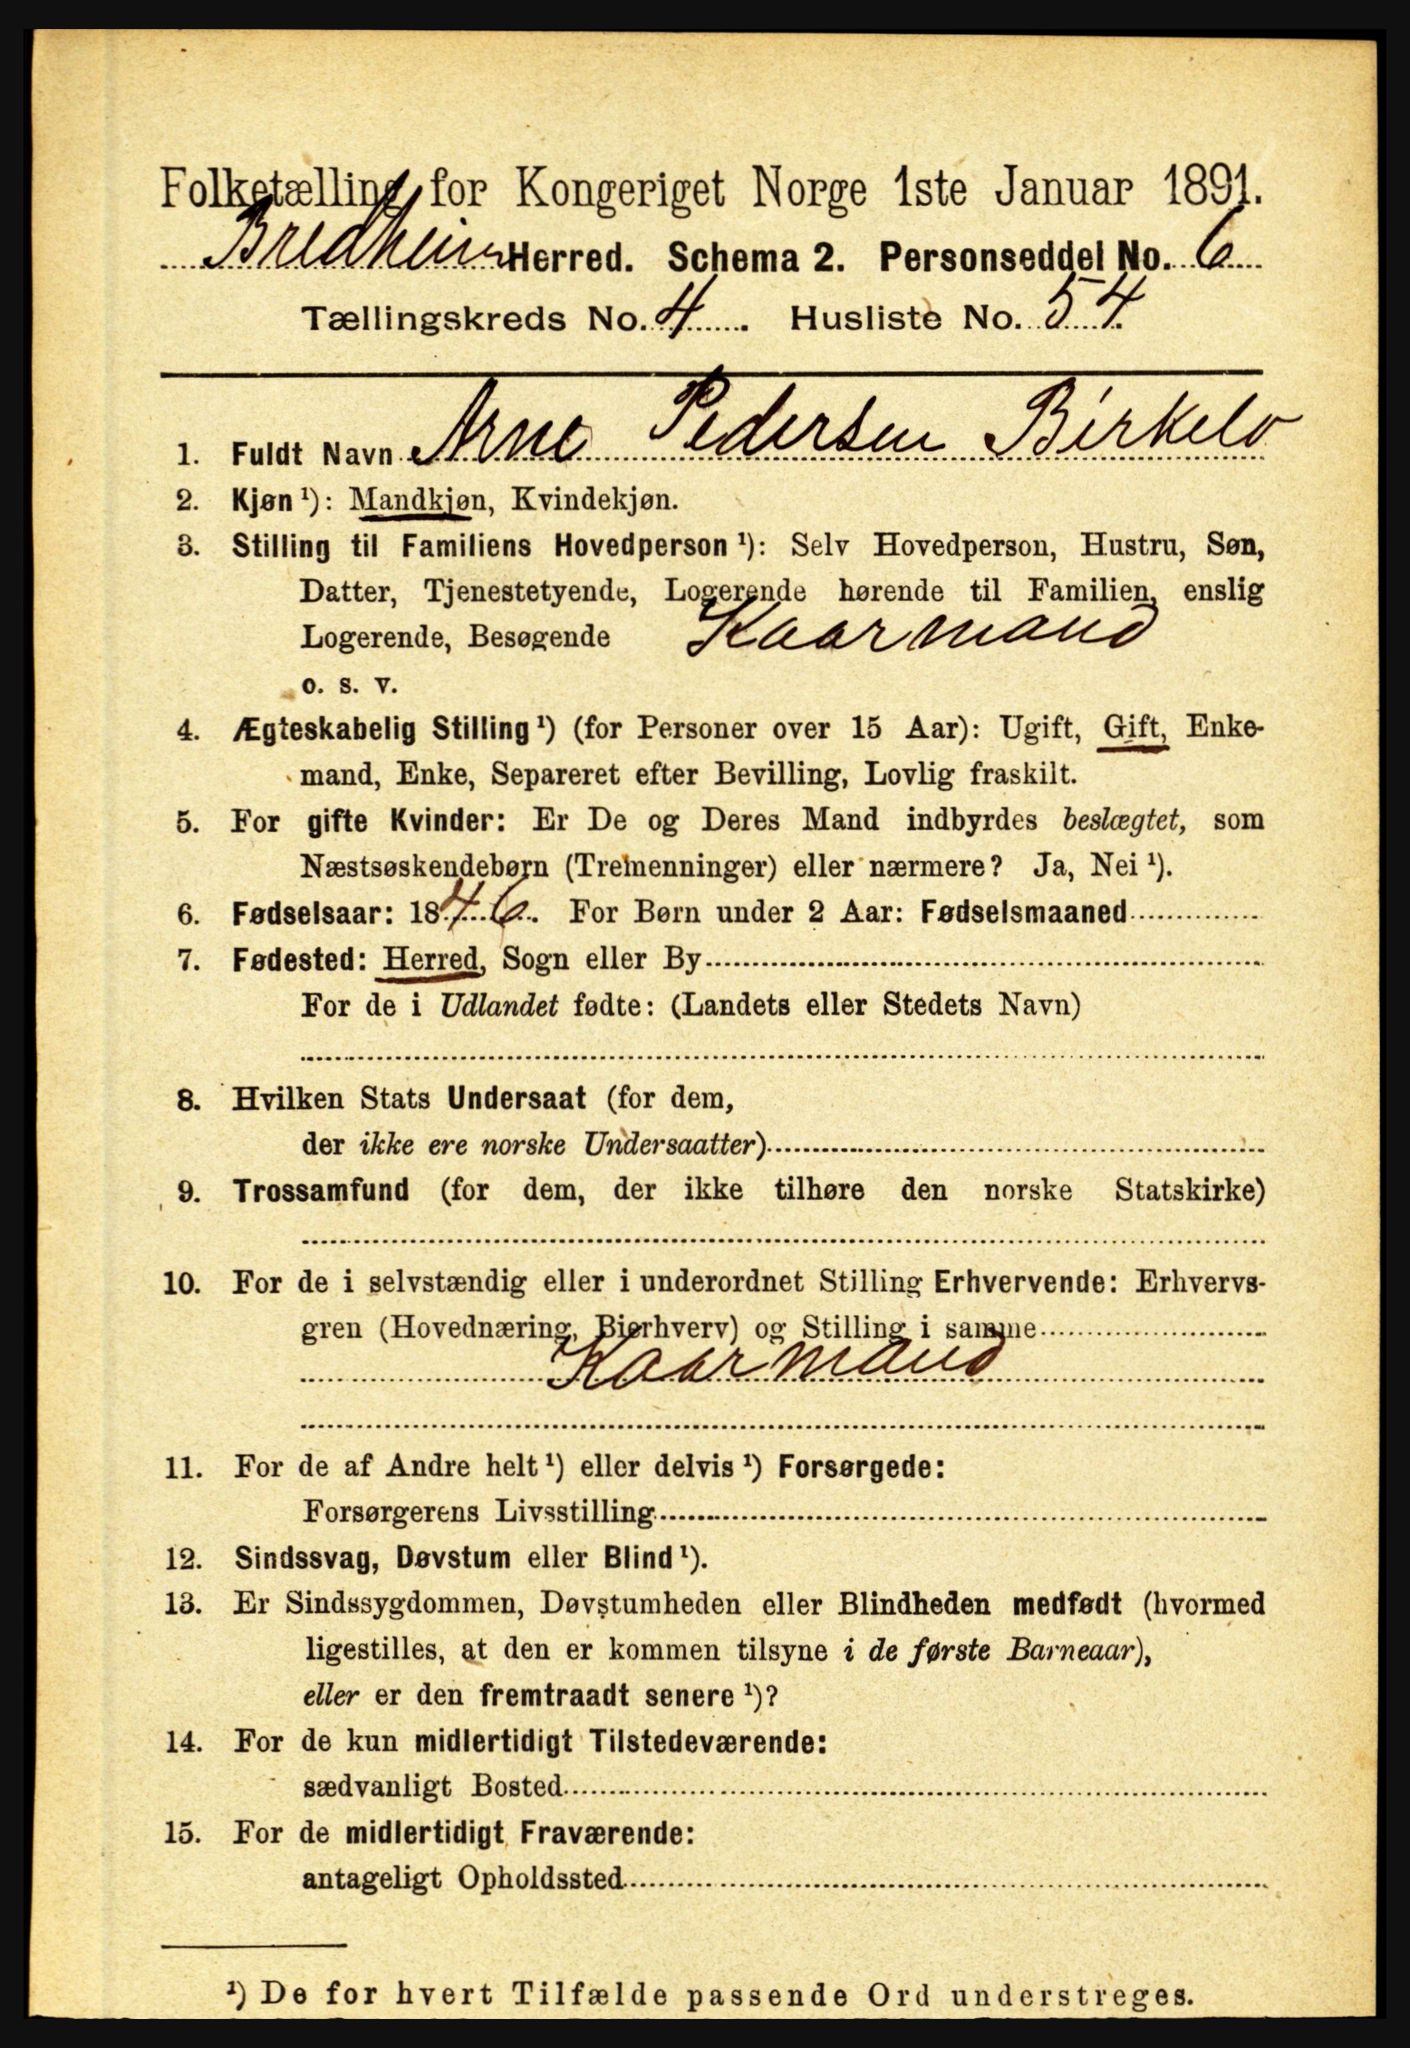 Folketælling for Kongeriget Norge 1ste Januar 1891.
Bredheim Herred. Schema 2. Personseddel No. 6
Tællingskreds No. 4. Husliste No. 54.
1. Fuldt Navn Arne Pedersen Birkelo
2. Kjøn ¹): Mandkjøn, Kvindekjøn.
3. Stilling til Familiens Hovedperson ¹): Selv Hovedperson, Hustru, Søn,
Datter, Tjenestetyende, Logerende hørende til Familien, enslig
Logerende, Besøgende Kaarmand
o. s. v.
4. Ægteskabelig Stilling ¹) (for Personer over 15 Aar): Ugift, Gift, Enke-
mand, Enke, Separeret efter Bevilling, Lovlig fraskilt.
5. For gifte Kvinder: Er De og Deres Mand indbyrdes beslægtet, som
Næstsøskendebørn (Tremenninger) eller nærmere? Ja, Nei ¹).
6. Fødselsaar: 1846. For Børn under 2 Aar: Fødselsmaaned
7. Fødested: Herred, Sogn eller By
For de i Udlandet fødte: (Landets eller Stedets Navn)
8. Hvilken Stats Undersaat (for dem,
der ikke ere norske Undersaatter)
9. Trossamfund (for dem, der ikke tilhøre den norske Statskirke)
10. For de i selvstændig eller i underordnet Stilling Erhvervende: Erhvervs-
gren (Hovednæring, Bierhverv) og Stilling i samme
Kaarmand
11. For de af Andre helt ¹) eller delvis ¹) Forsørgede:
Forsørgerens Livsstilling
12. Sindssvag, Døvstum eller Blind ¹).
13. Er Sindssygdommen, Døvstumheden eller Blindheden medfødt (hvormed
ligestilles, at den er kommen tilsyne i de første Barneaar),
eller er den fremtraadt senere ¹)?
14. For de kun midlertidigt Tilstedeværende:
sædvanligt Bosted
15. For de midlertidigt Fraværende:
antageligt Opholdssted
¹) De for hvert Tilfælde passende Ord understreges.